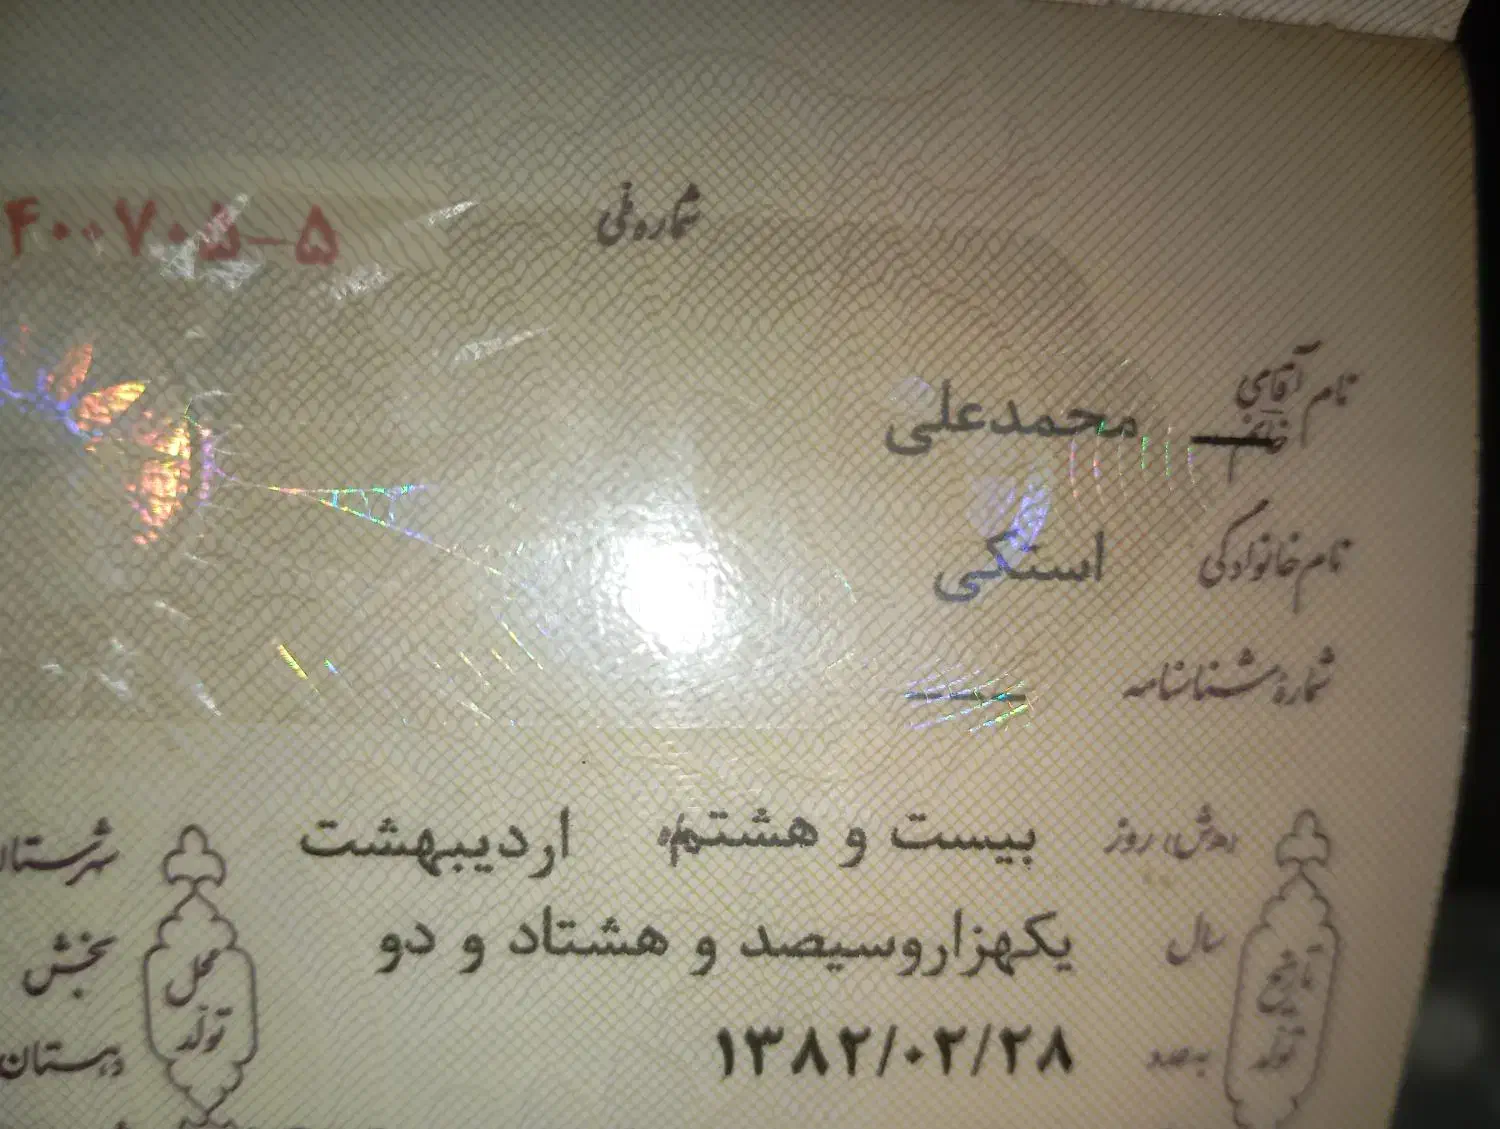 شماره ملی ۴۰۰۷۰۵-۵
نام آقای محمدعلی
خانم
نام خانوادگی استکی
شماره شناسنامه —
روز بیست و هشتم ماه اردیبهشت
سال یکهزاروسیصد و هشتاد و دو
بعدد ۱۳۸۲/۰۲/۲۸
تاریخ تولد
محل تولد
شهرستان
بخش
دهستان